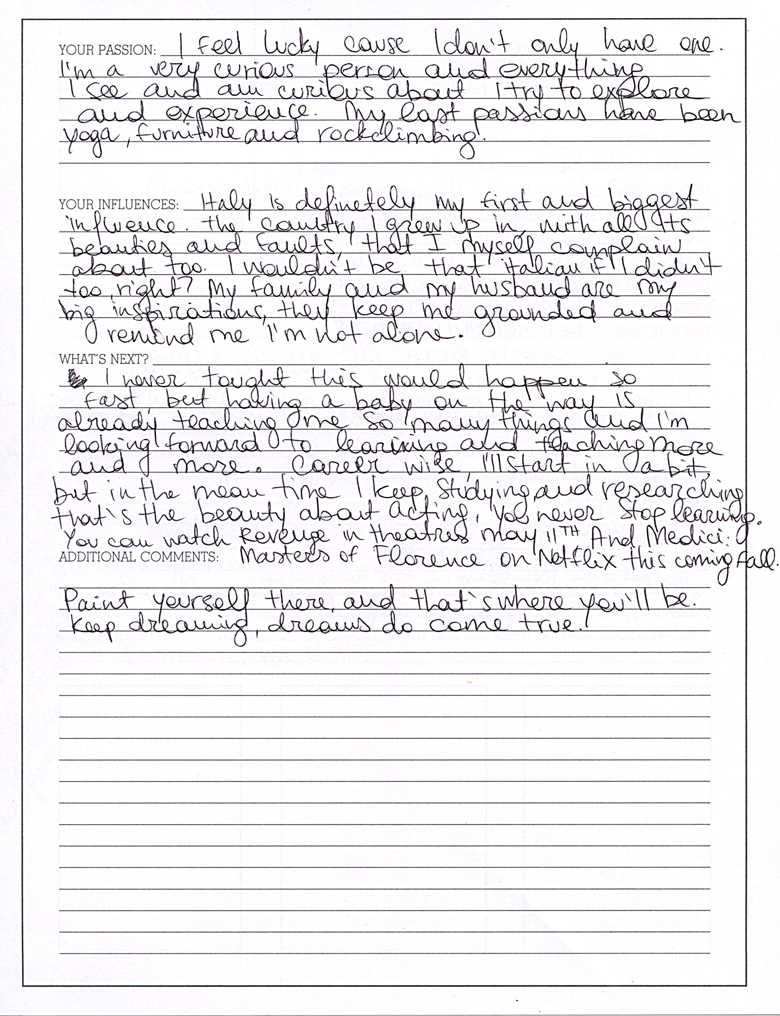 YOUR PASSION: I feel lucky cause I don't only have one.
I'm a very curious person and everything
I see and am curious about I try to explore
and experience. My last passions have been
yoga, furniture and rockclimbing!
YOUR INFLUENCES: Italy is definetely my first and biggest
influence. The country I grew up in, with all its
beauties and faults, that I myself complain
about too. I wouldn't be that italian if I didn't
too, right? My family and my husband are my
big inspirations, they keep me grounded and
remind me I'm not alone.
WHAT'S NEXT?
I never tought this would happen so
fast, but having a baby on the way is
already teaching me so many things and I'm
looking forward to learining and teaching more
and more. Career wise, I'll start in a bit,
but in the mean time I keep studying and researching
that's the beauty about acting, you never stop learning.
You can watch Revenge in theatres may 11TH And Medici:
ADDITIONAL COMMENTS: Masters of Florence on Netflix this coming fall.
Paint yourself there, and that's where you'll be.
Keep dreaming, dreams do come true!